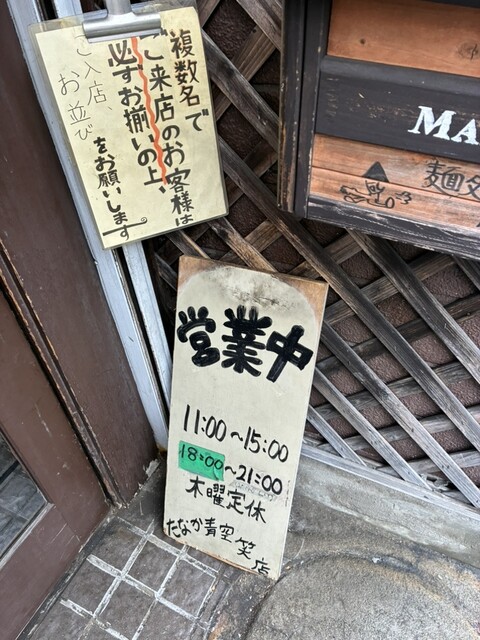 複数名で
ご来店のお客様は
必ずお揃いの上、
ご入店、
お並び
をお願いします
MA
麺
営業中
11:00~15:00
18:00~21:00
木曜定休
たなか青空笑店